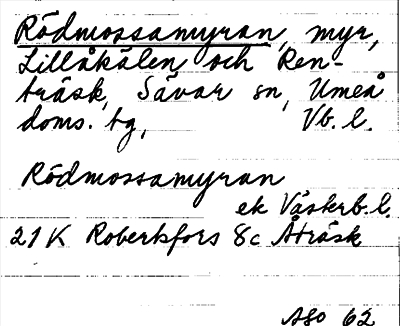 Rödmossamyran, myr,
Lillåkälen och Ren-
träsk, Sävar sn, Umeå
doms. tg, Vb. l.
Rödmossamyran
ek Västerb. l.
21 K Robertsfors 8c Åträsk
ASO 62